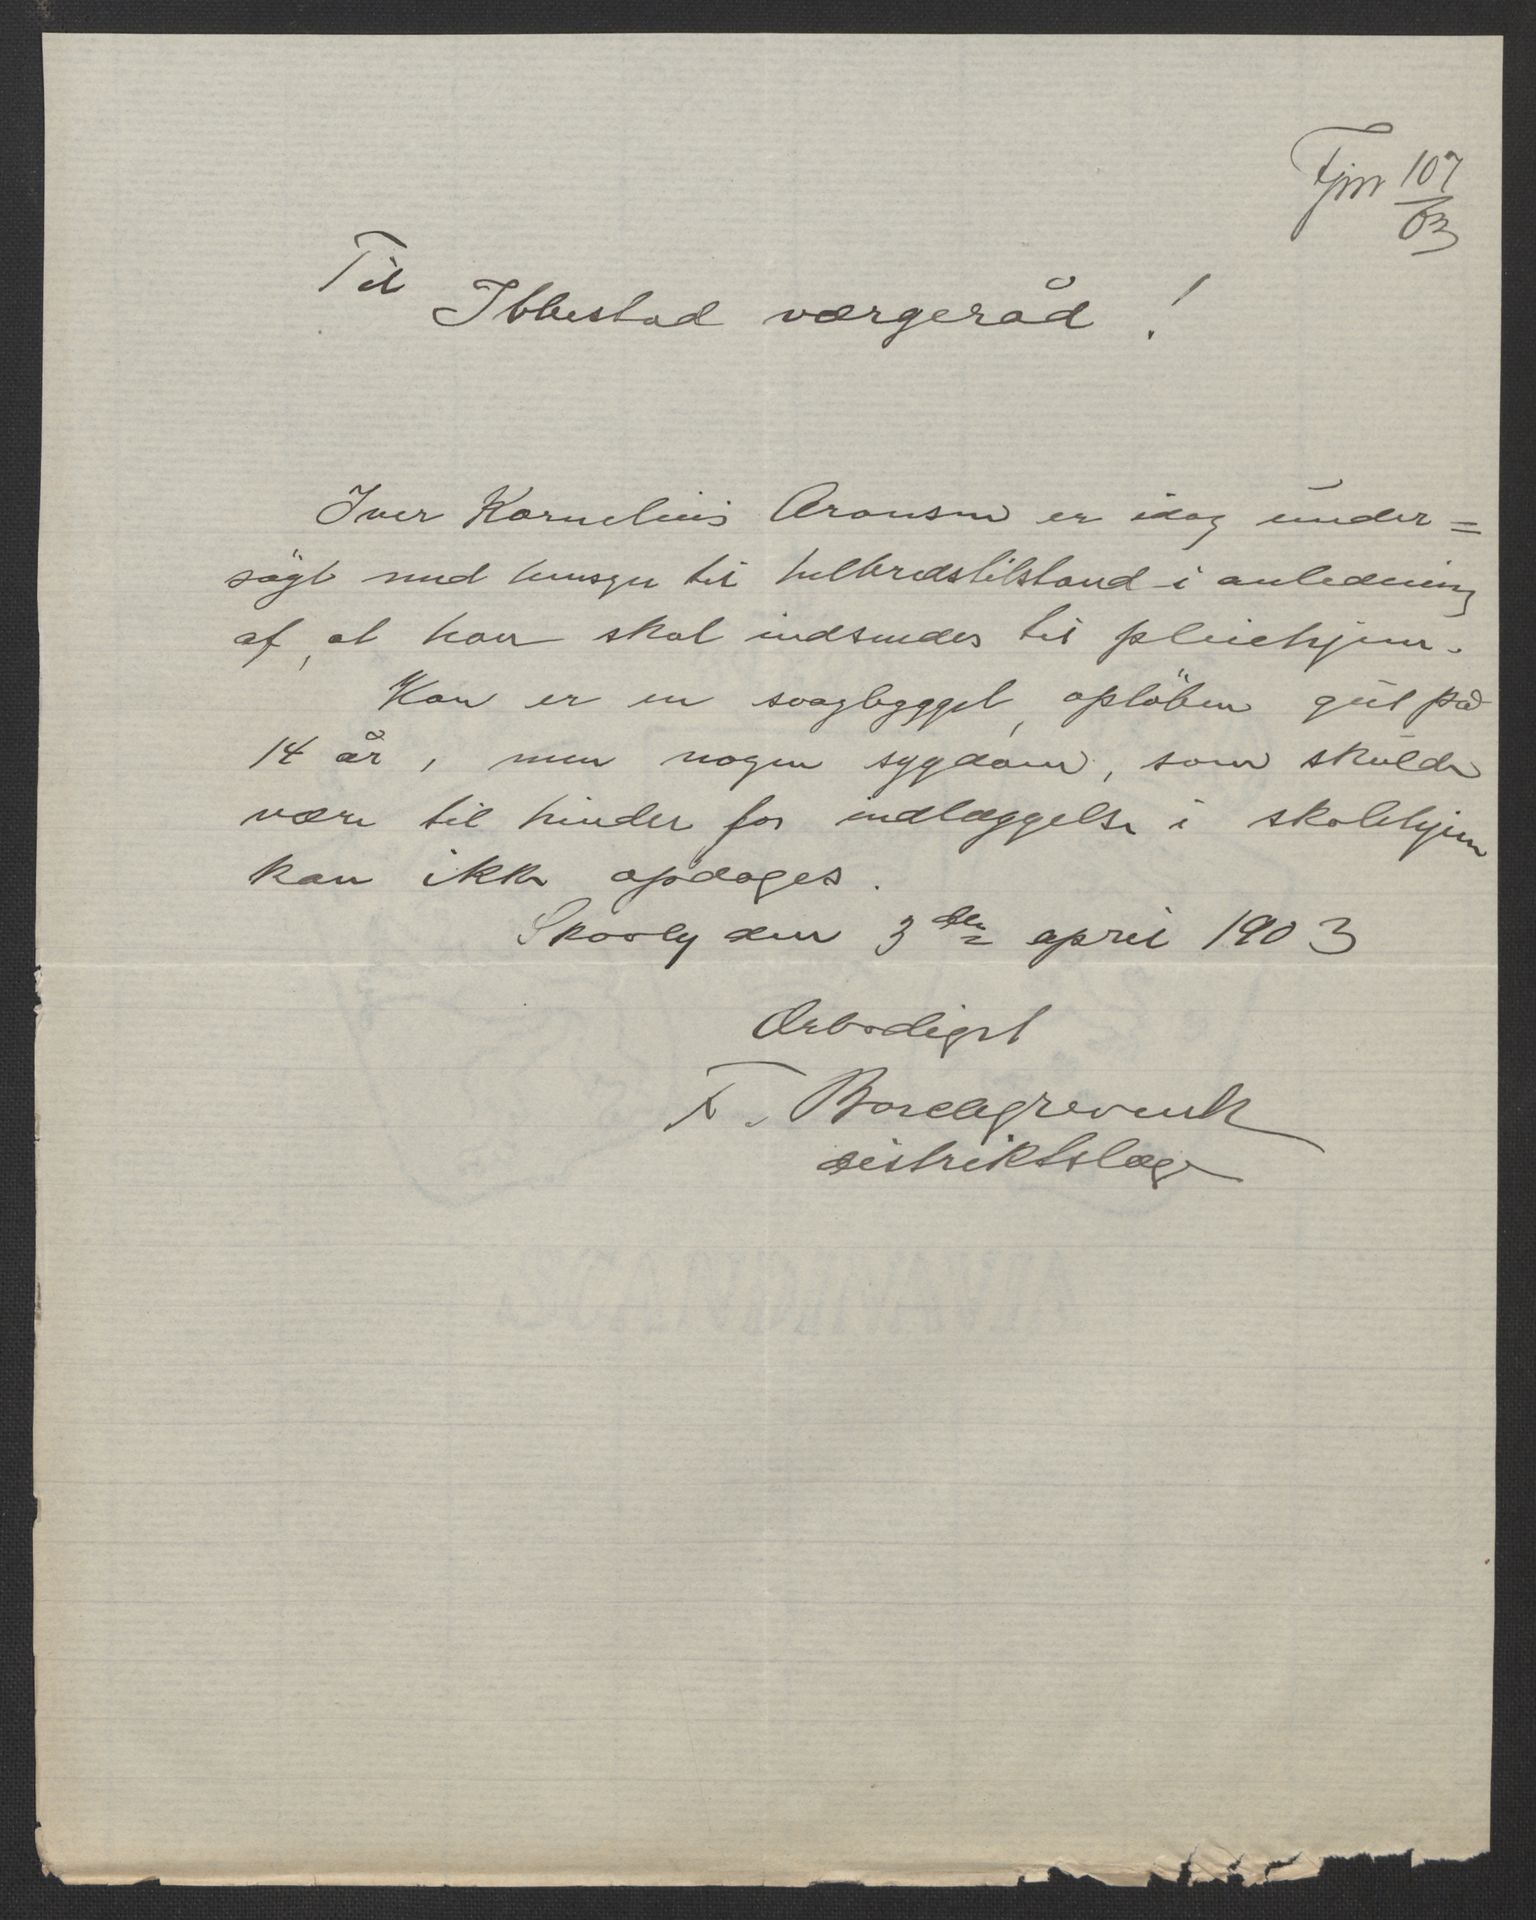 Fjnr 107
03
Til
Ibbestad værgeråd !
Iver Kornelius Aronsen er idag under=
søgt med hensyn til helbredstilstand i anledning
af, at han skal indsendes til pleiehjem.
Han er en svagbygget, opløben gut på
14 år, men nogen sygdom, som skulde
være til hinder for indlæggelse i skolehjem
kan ikke opdages.
Skovly den 3den april 1903
Ærbødigst
F. Borchgrevink
distriktslæge